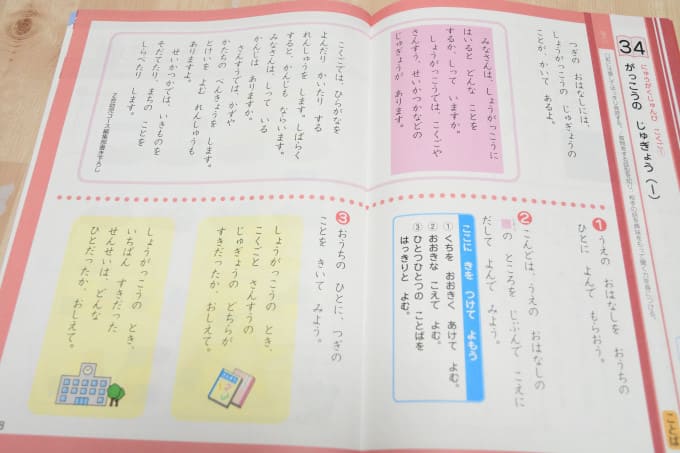 34
にゅうがくじゅんび こくご
がっこうの じゅぎょう(1)
つぎの おはなしには、
しょうがっこうの じゅぎょうの
ことが、かいて あるよ。
みなさんは、しょうがっこうに
はいると どんな ことを
するか、しって いますか。
しょうがっこうでは、こくごや
さんすう、せいかつかなどの
じゅぎょうが あります。
こくごでは、ひらがなを
よんだり かいたり する
れんしゅうを します。しばらく
すると、かんじも ならいます。
みなさんは、しって いる
かんじは ありますか。
さんすうでは、かずや
かたちの べんきょうを します。
とけいを よむ れんしゅうも
ありますよ。
せいかつかでは、いきものを
そだてたり、まちの ことを
しらべたり します。
Z会幼児コース編集部書き下ろし
1 うえの おはなしを おうちの
ひとに よんで もらおう。
2 こんどは、うえの おはなしの
の ところを じぶんで こえに
だして よんで みよう。
ここに きを つけて よもう
① くちを おおきく あけて よむ。
② おおきな こえで よむ。
③ ひとつひとつの ことばを
はっきりと よむ。
3 おうちの ひとに、つぎの
ことを きいて みよう。
しょうがっこうの とき、
こくごと さんすうの
じゅぎょうの どちらが
すきだったか、おしえて。
しょうがっこうの とき、
いちばん すきだった
せんせいは、どんな
ひとだったか、おしえて。
ことば